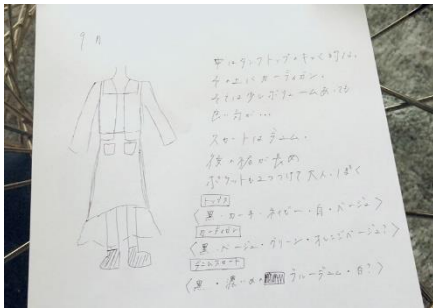 9月
中はタンクトップ・キャミ的な。
その上にカーディガン。
そでは少しボリュームあっても
スカートはデニム。
後の裾が長め
ポケットも2つつけて大人っぽく
トップス
〈黒・カーキ・ネイビー・白・ベージュ〉
カーディガン
〈黒・ベージュ・グリーン・オレンジベージュ?〉
デニムスカート
〈黒・濃い ブルーデニム・白?〉